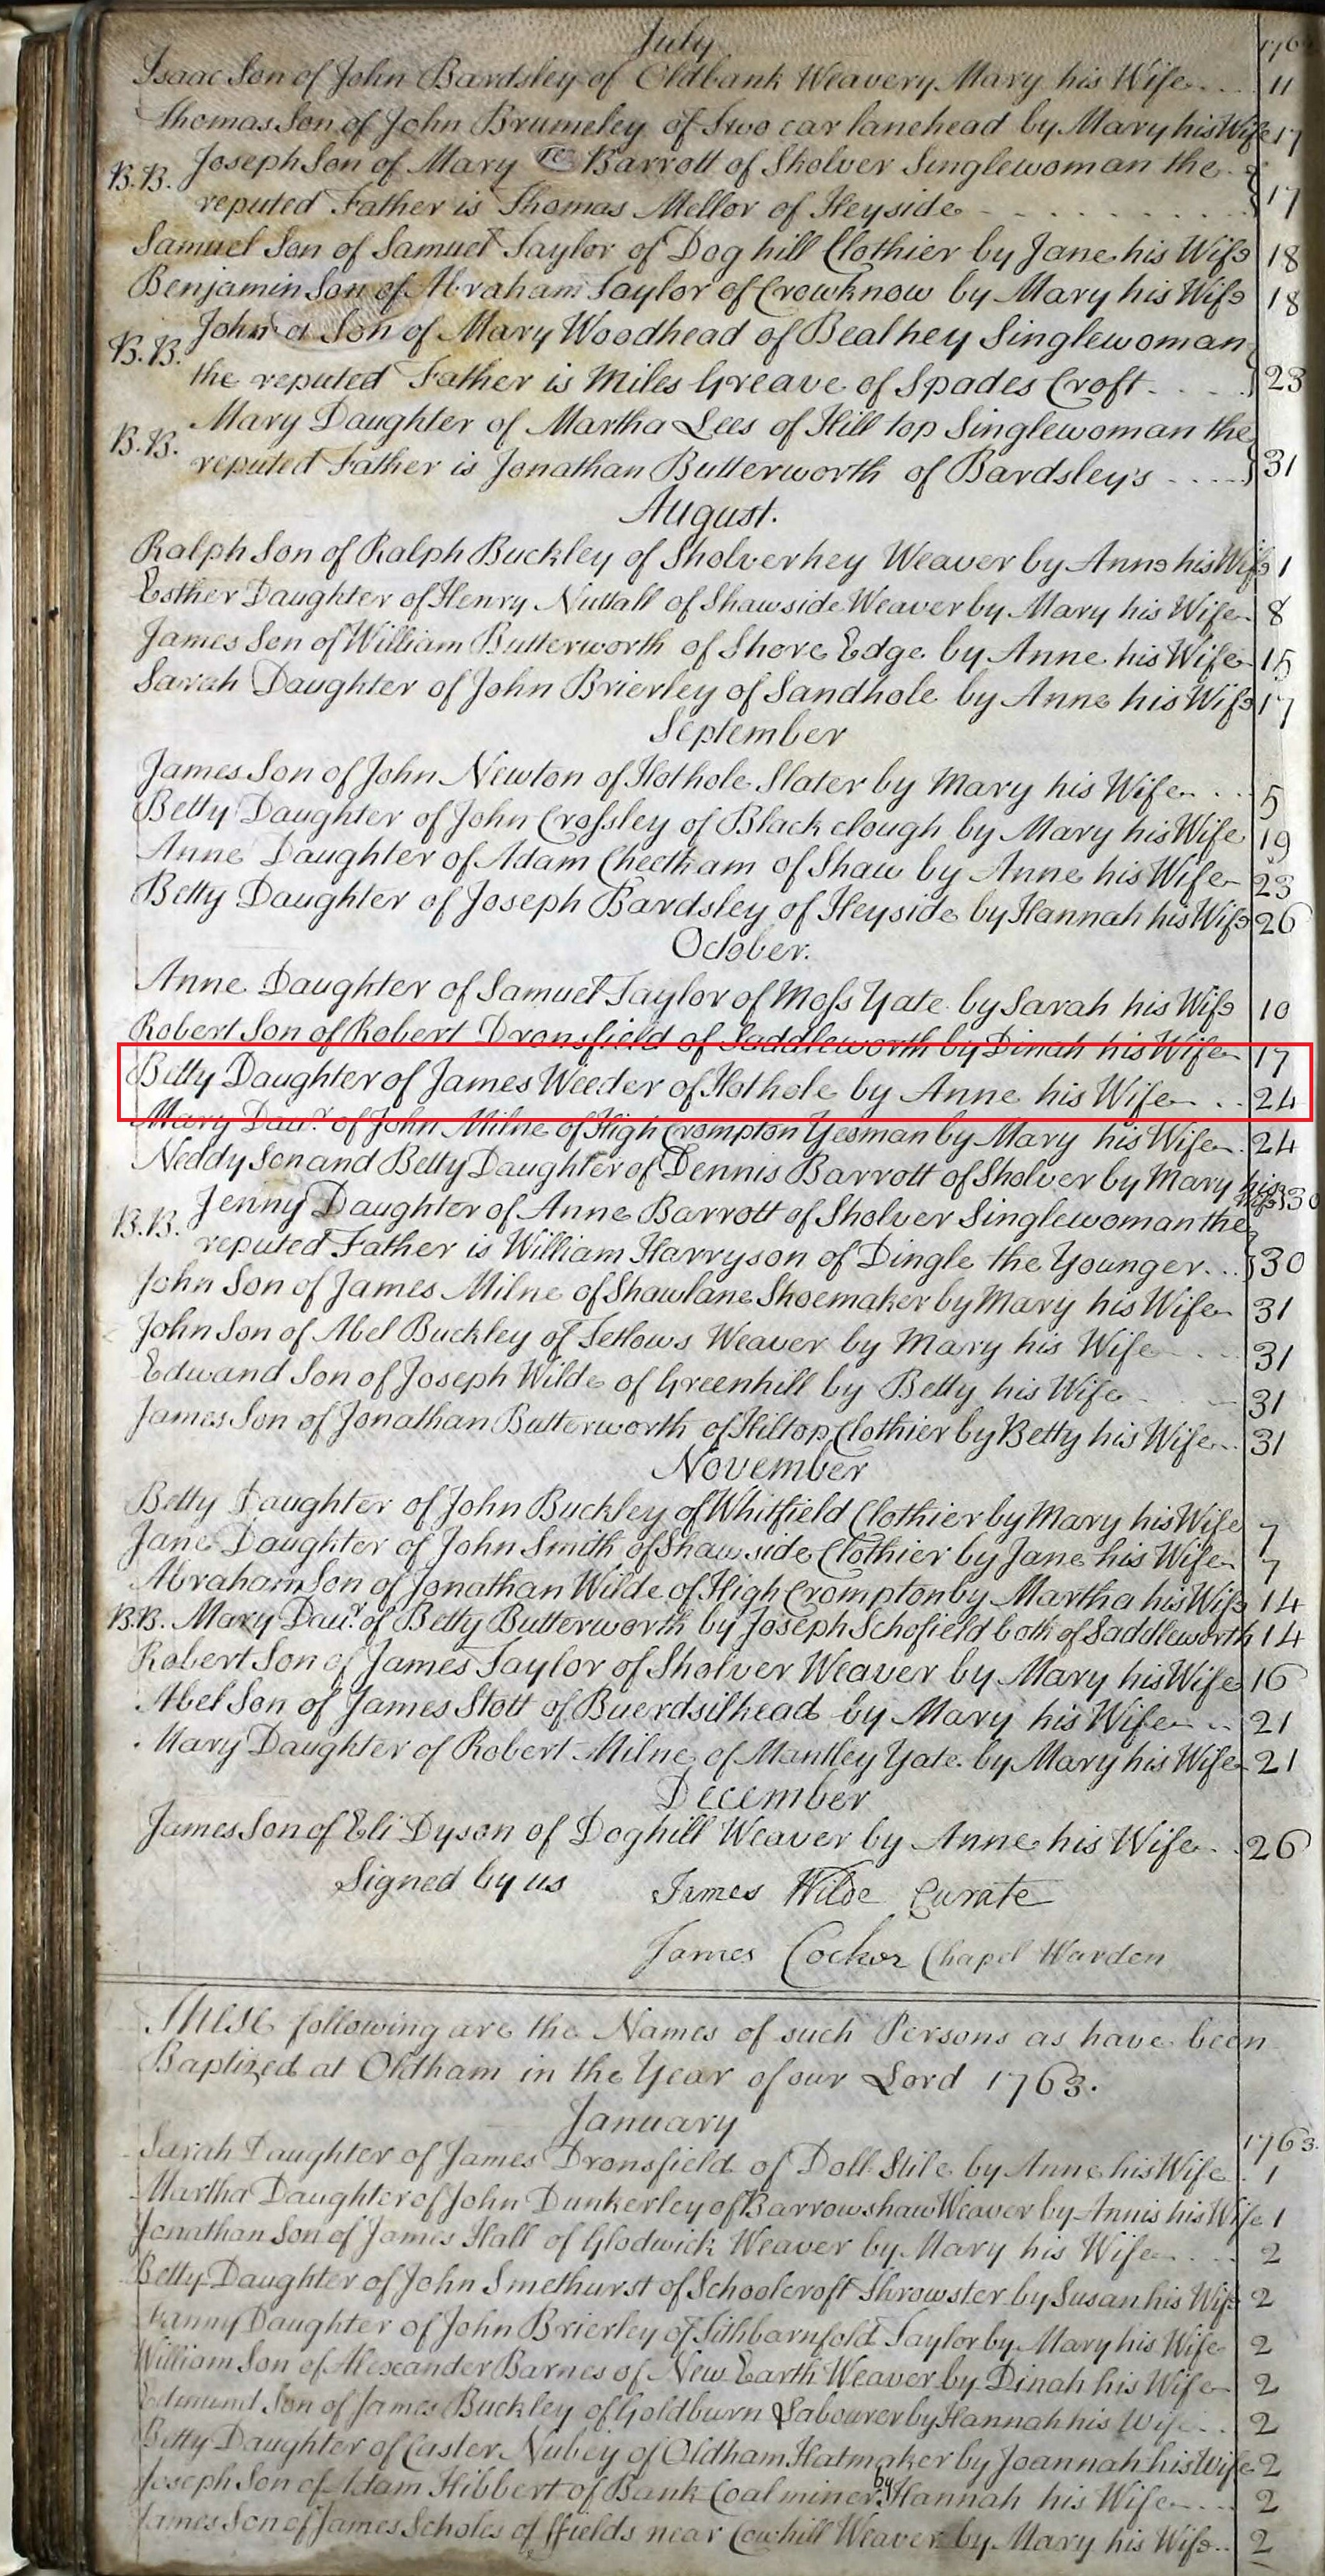 July
Isaac Son of John Bardsley of Oldbank Weaver y Mary his Wife.... 11
Thomas Son of John Brumeley of two car lanehead by Mary his Wife 17
B.B. Joseph Son of Mary Barrott of Sholver Singlewoman the
reputed Father is Thomas Mellor of Heyside - . . . . . . . } 17
Samuel Son of Samuel Taylor of Dog hill Clothier by Jane his Wife 18
Benjamin Son of Abraham Taylor of Crowknow by Mary his Wife 18
B.B. John a Son of Mary Woodhead of Bealhey Singlewoman
the reputed Father is Miles Greave of Spades Croft . . . . } 23
B.B. Mary Daughter of Martha Lees of Hill top Singlewoman the
reputed Father is Jonathan Butterworth of Bardsley's ..... } 31
August.
Ralph Son of Ralph Buckley of Sholverhey Weaver by Anne his Wife 1
Esther Daughter of Henry Nuttall of Shawside Weaver by Mary his Wife 8
James Son of William Butterworth of Shore Edge by Anne his Wife 15
Sarah Daughter of John Brierley of Sandhole by Anne his Wife 17
September
James Son of John Newton of Hothole Slater by Mary his Wife . . . 5
Betty Daughter of John Crossley of Black clough by Mary his Wife 19
Anne Daughter of Adam Cheetham of Shaw by Anne his Wife 23
Betty Daughter of Joseph Bardsley of Heyside by Hannah his Wife 26
October.
Anne Daughter of Samuel Taylor of Moss Yate by Sarah his Wife 10
Robert Son of Robert Dronsfield of Saddleworth by Dinah his Wife 17
Betty Daughter of James Weeder of Hothole by Anne his Wife . . . 24
Mary Daur. of John Milne of High Crompton Yeoman by Mary his Wife 24
Neddy Son and Betty Daughter of Dennis Barrott of Sholver by Mary his Wife 30
B.B. Jenny Daughter of Anne Barrott of Sholver Singlewoman the
reputed Father is William Harryson of Dingle the Younger... } 30
John Son of James Milne of Shawlane Shoemaker by Mary his Wife 31
John Son of Abel Buckley of Setlows Weaver by Mary his Wife 31
Edward Son of Joseph Wilde of Greenhill by Betty his Wife 31
James Son of Jonathan Butterworth of Hiltop Clothier by Betty his Wife... 31
November
Betty Daughter of John Buckley of Whitfield Clothier by Mary his Wife 7
Jane Daughter of John Smith of Shawside Clothier by Jane his Wife 7
Abraham Son of Jonathan Wilde of High Crompton by Martha his Wife 14
B.B. Mary Daur. of Betty Butterworth by Joseph Schofield both of Saddleworth 14
Robert Son of James Taylor of Sholver Weaver by Mary his Wife 16
Abel Son of James Stott of Buerdsilhead by Mary his Wife 21
Mary Daughter of Robert Milne of Mantley Yate by Mary his Wife 21
December
James Son of Eli Dyson of Doghill Weaver by Anne his Wife . . 26
Signed by us James Wilde Curate
James Cocker Chapel Warden
These following are the Names of such Persons as have been
Baptized at Oldham in the Year of our Lord 1763.
January 1763.
Sarah Daughter of James Dronsfield of Doll Stile by Anne his Wife . 1
Martha Daughter of John Dunkerley of Barrowshaw Weaver by Annis his Wife 1
Jonathan Son of James Hall of Glodwick Weaver by Mary his Wife .... 2
Betty Daughter of John Smethurst of Schoolcroft Throwster by Susan his Wife 2
Fanny Daughter of John Brierley of Sithbarnfold Taylor by Mary his Wife 2
William Son of Alexander Barnes of New Earth Weaver by Dinah his Wife 2
Edmund Son of James Buckley of Goldburn Labourer by Hannah his Wife... 2
Betty Daughter of Casler Nubey of Oldham Hatmaker by Joannah his Wife 2
Joseph Son of Adam Hibbert of Bank Coalminer by Hannah his Wife .... 2
James Son of James Scholes of ffields near Cowhill Weaver by Mary his Wife.. 2